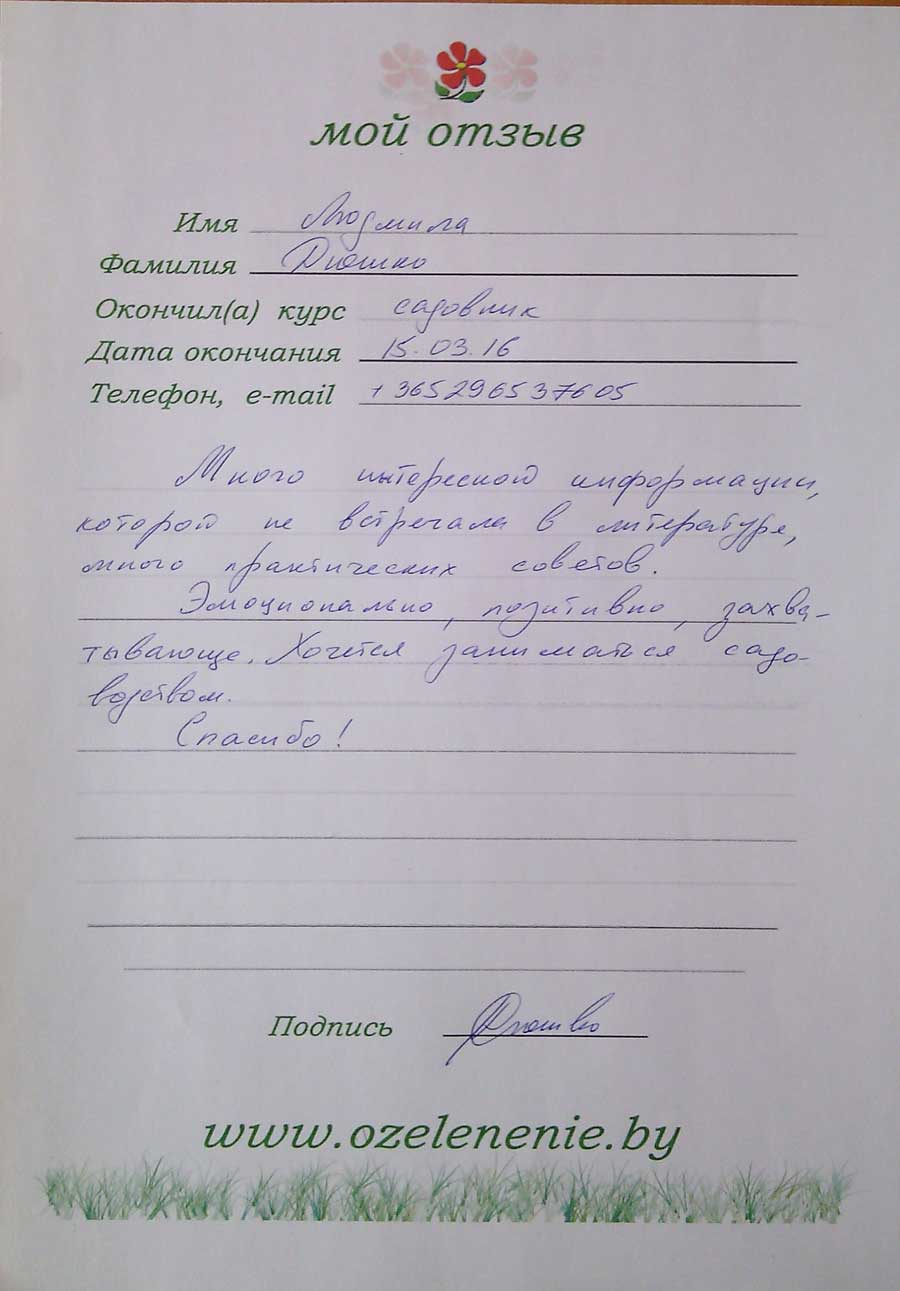 мой отзыв
Имя Людмила
Фамилия Дюшко
Окончил(а) курс садовник
Дата окончания 15.03.16
Телефон, e-mail +365296537605
Много интересной информации,
которой не встречала в литературе,
много практических советов.
Эмоционально, позитивно, захва-
тывающе. Хочется заниматься садо-
водством.
Спасибо!
Подпись Дюшко
www.ozelenenie.by